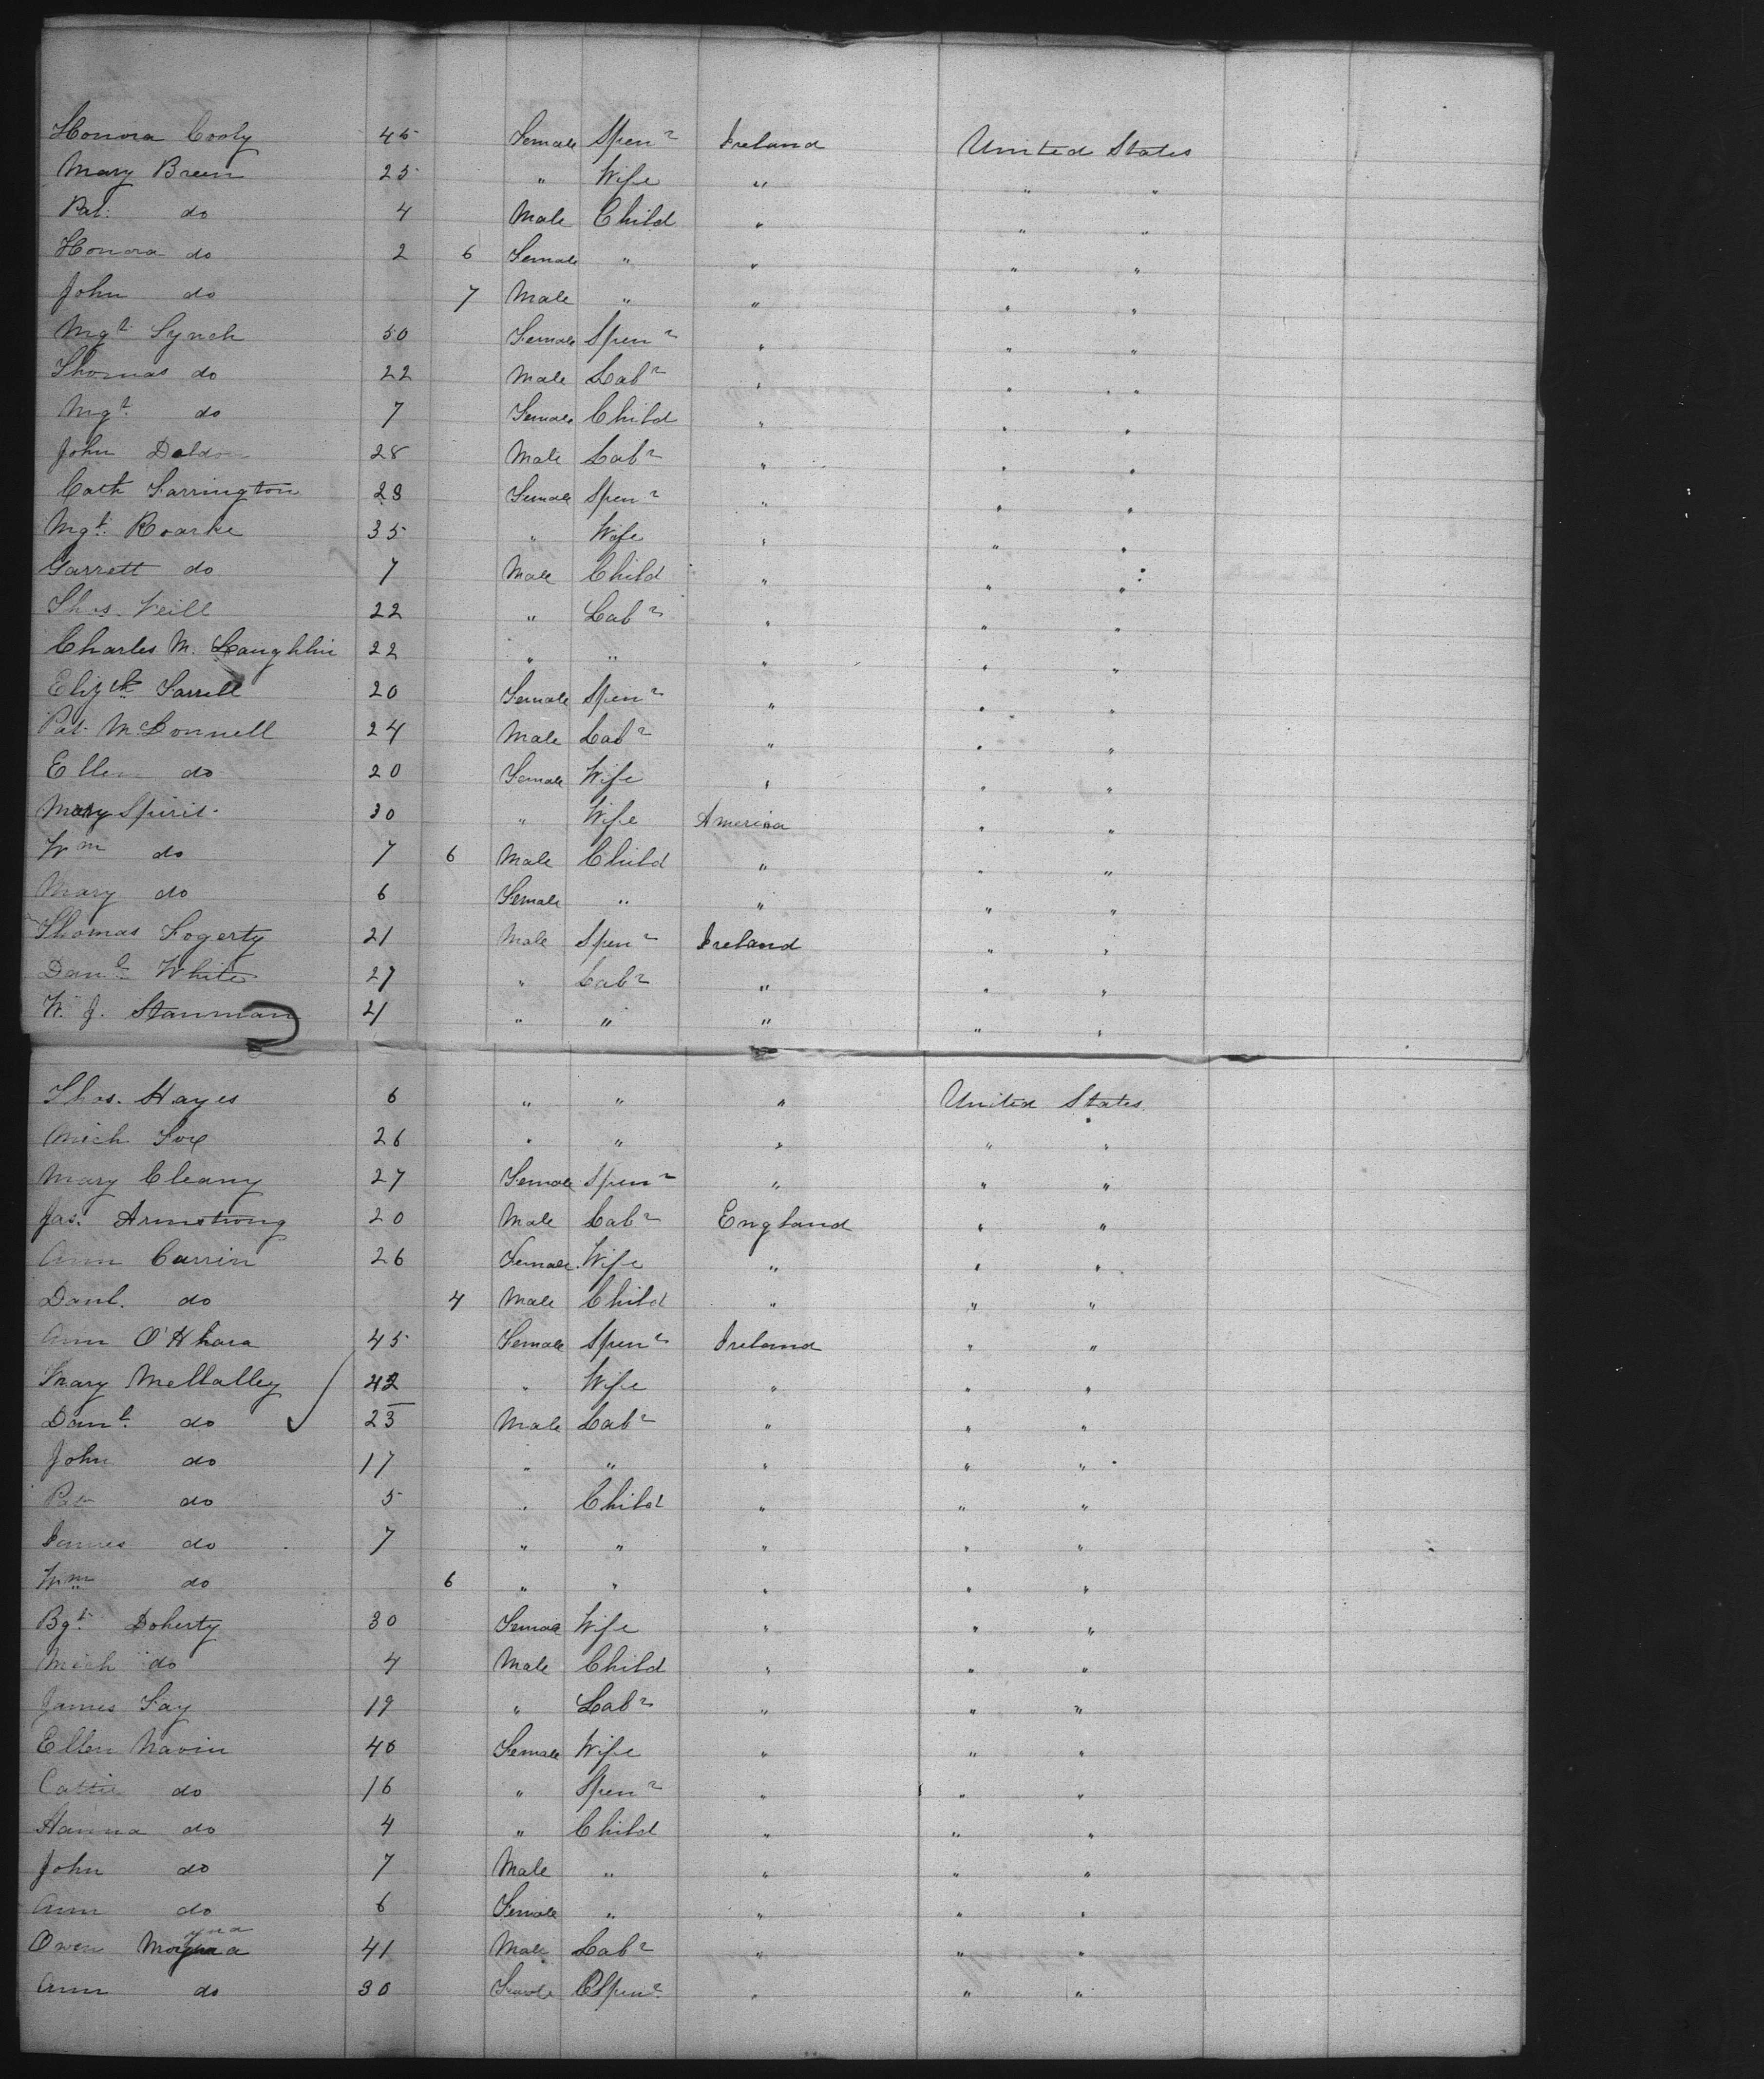 Honora Cooly 45 Female Spenr Ireland United States
Mary Breen 25 " Wife " " "
Pat. do 4 Male Child " " "
Honora do 2 6 Female " " " "
John do 7 Male " " " "
Mgt Lynch 50 Female Spenr " " "
Thomas do 22 Male Labr " " "
Mgt. do 7 Female Child " " "
John Daldon 28 Male Labr " " "
Cath Farrington 28 Female Spenr " " "
Mgt. Roarke 35 " Wife " " "
Garrett do 7 Male Child " " "
Thos. Neill 22 " Labr " " "
Charles M. Laughlin 22 " " " " "
Elizth Farrell 20 Female Spenr " " "
Pat McDonnell 24 Male Labr " " "
Ellen do 20 Female Wife " " "
Mary Spirit 30 " Wife America " "
Wm do 7 6 Male Child " " "
Mary do 6 Female " " " "
Thomas Fogerty 21 Male Spenr Ireland " "
Danl White 27 " Labr " " "
W. J. Stanman 21 " " " " "
Thos. Hayes 6 " " " United States
Mich Fox 26 " " " " "
Mary Cleany 27 Female Spenr " " "
Jas. Armstrong 20 Male Labr England " "
Ann Carrin 26 Female Wife " " "
Danl. do 4 Male Child " " "
Ann O'Hhara 45 Female Spenr Ireland " "
Mary McNalley 42 " Wife " " "
Danl. do 23 Male Labr " " "
John do 17 " " " " "
Pat do 5 " Child " " "
James do 7 " " " " "
Wm do 6 " " " " "
Bgt. Doherty 30 Female Wife " " "
Mich do 4 Male Child " " "
James Fay 19 " Labr " " "
Ellen Navin 40 Female Wife " " "
Cattie do 16 " Spenr " " "
Hanna do 4 " Child " " "
John do 7 Male " " " "
Ann do 6 Female " " " "
Owen 41 Male Labr " " "
Ann do 30 Female Spenr " " "